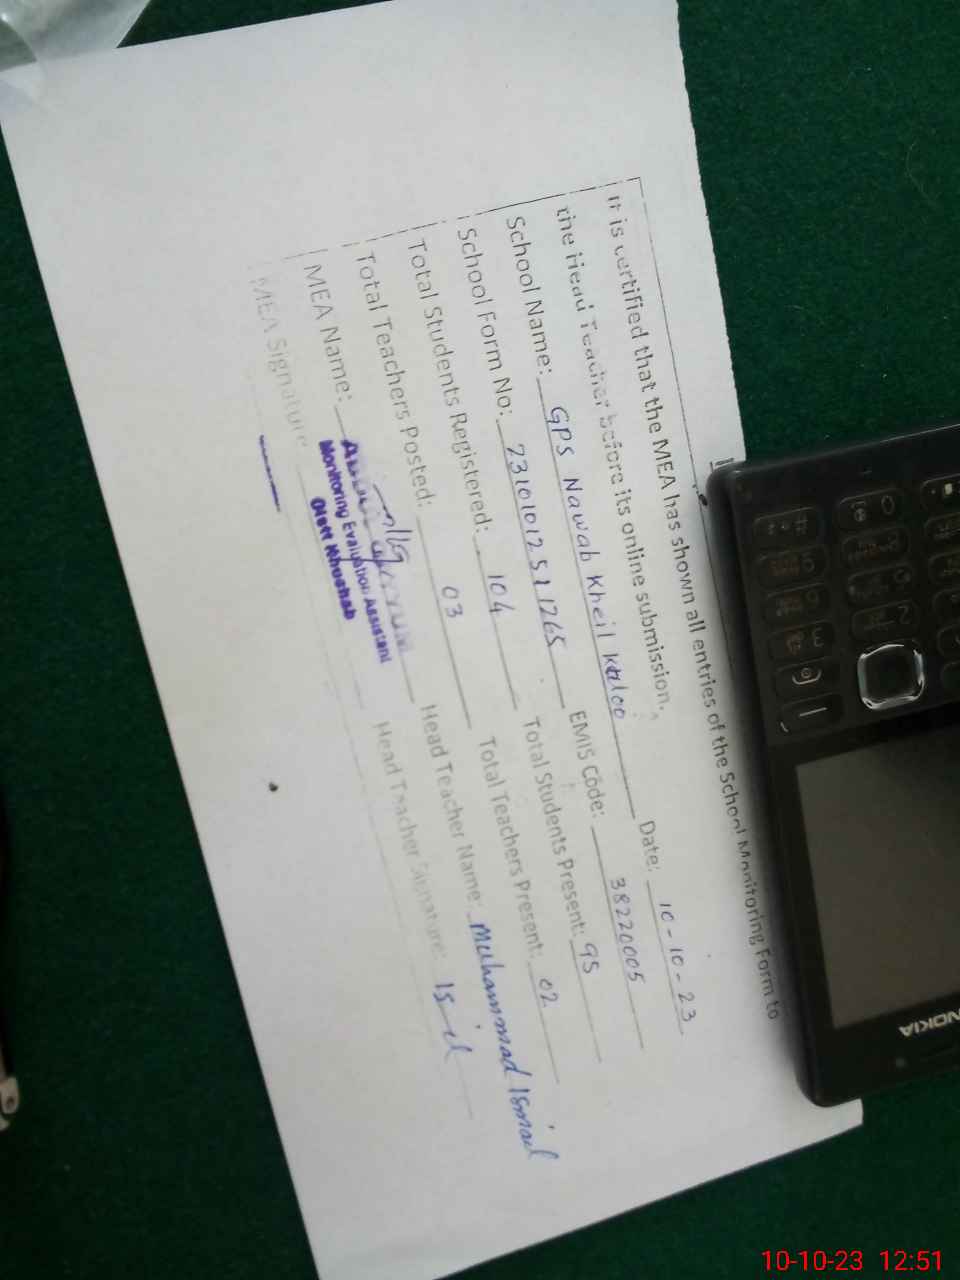 It is certified that the MEA has shown all entries of the School Monitoring Form to
the Head Teacher before its online submission.
School Name: GPS Nawab Kheil Kaloo Date: 10-10-23
School Form No: EMIS Code: 38220005
Total Students Registered: 104 Total Students Present: 95
Total Teachers Posted: 03 Total Teachers Present: 02
MEA Name: Head Teacher Name: Muhammad Ismail
Monitoring Evaluation Assistant
Distt Khushab
MEA Signature Head Teacher Signature:
NOKIA
10-10-23 12:51